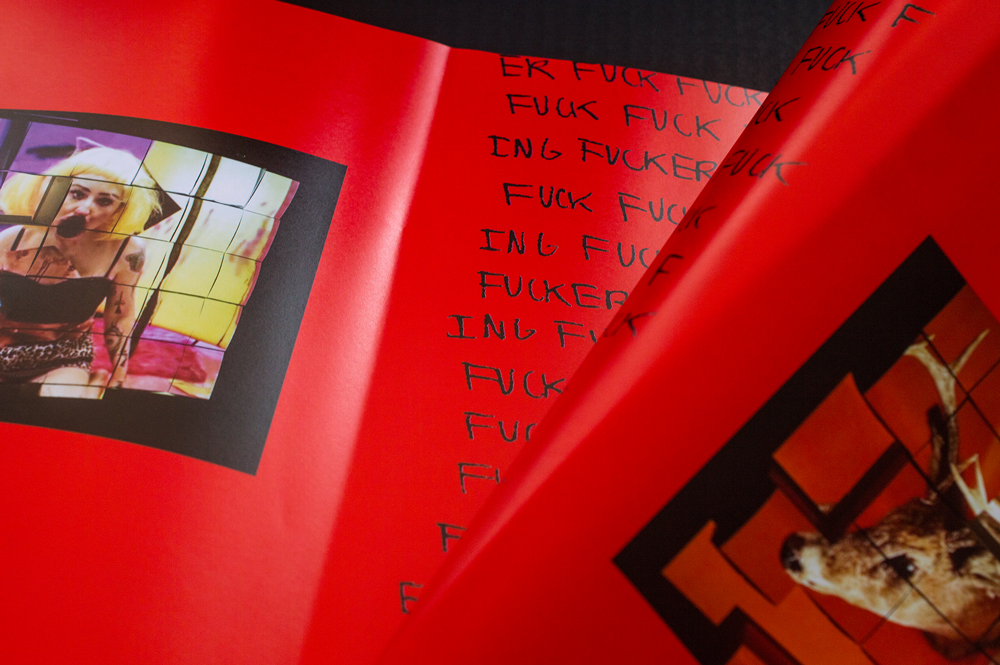 ER FUCK FUCK
FUCK FUCK
ING FUCKER
FUCK FUCK
ING FUC
FUCKER
ING FU
FUCK
FUC
F
F
E
FUCK F
FUCK
CK
FUCK
K
F
K